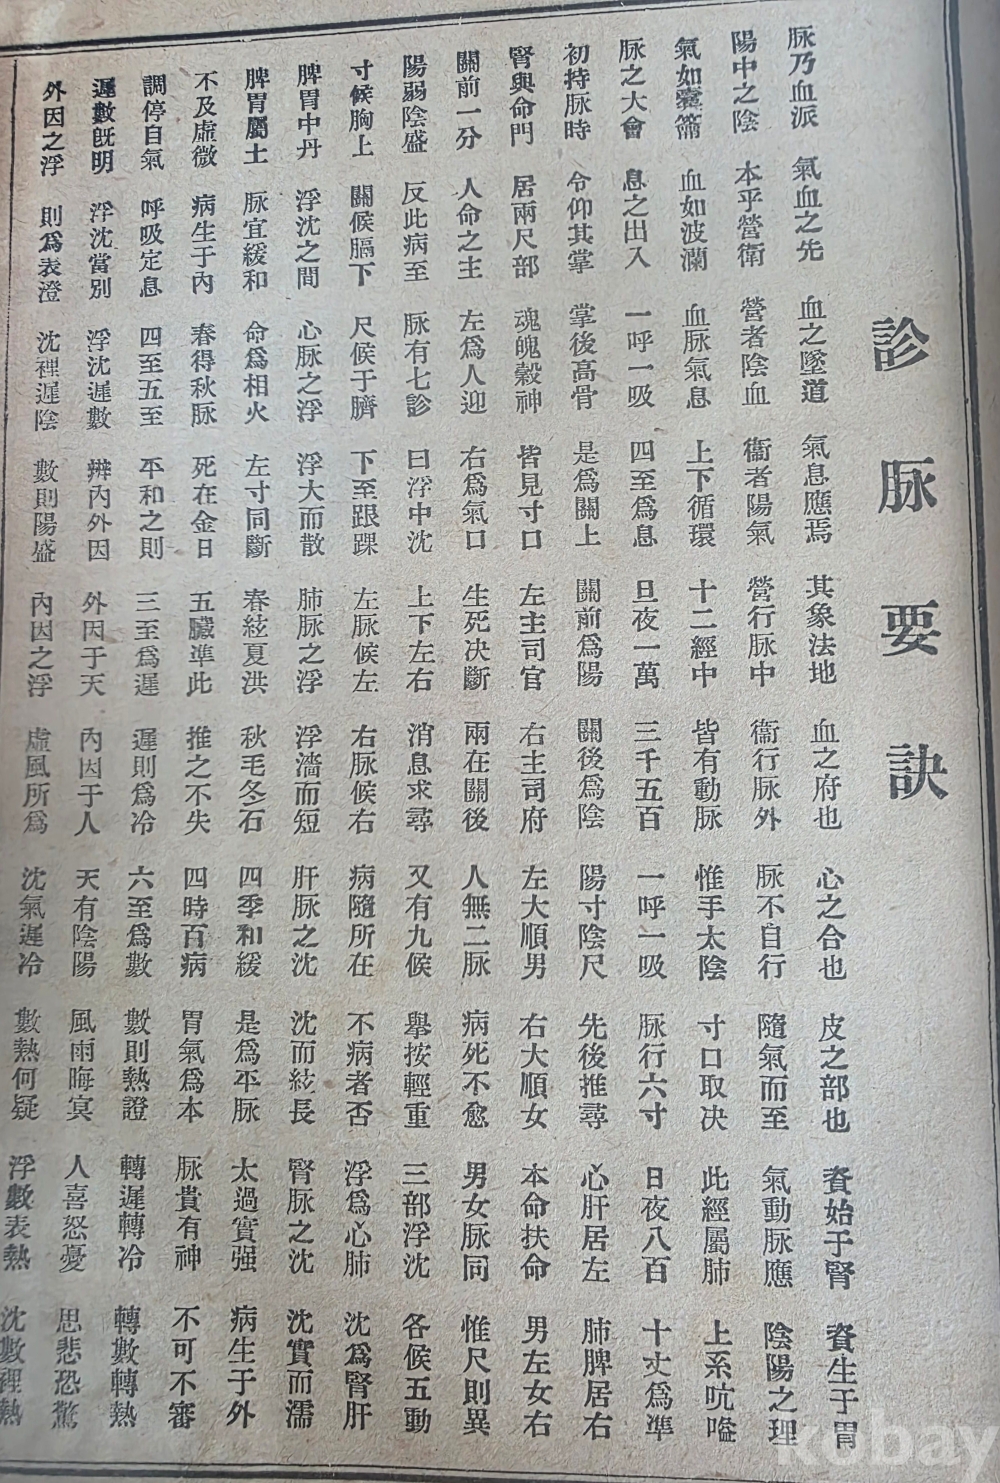 診脉要訣
脉乃血派 氣血之先 血之墜道 氣息應焉 其象法地 血之府也 心之合也 皮之部也 資始于腎 資生于胃
陽中之陰 本乎營衛 營者陰血 衞者陽氣 營行脉中 衞行脉外 脉不自行 隨氣而至 氣動脉應 陰陽之理
氣如橐籥 血如波瀾 血脉氣息 上下循環 十二經中 皆有動脉 惟手太陰 寸口取决 此經屬肺 上系吭嗌
脉之大會 息之出入 一呼一吸 四至爲息 旦夜一萬 三千五百 一呼一吸 脉行六寸 日夜八百 十丈爲準
初持脉時 令仰其掌 掌後高骨 是爲關上 關前爲陽 關後爲陰 陽寸陰尺 先後推尋 心肝居左 肺脾居右
腎與命門 居兩尺部 魂魄穀神 皆見寸口 左主司官 右主司府 左大順男 右大順女 本命扶命 男左女右
關前一分 人命之主 左爲人迎 右爲氣口 生死决斷 兩在關後 人無二脉 病死不愈 男女脉同 惟尺則異
陽弱陰盛 反此病至 脉有七診 曰浮中沈 上下左右 消息求尋 又有九候 舉按輕重 三部浮沈 各候五動
寸候胸上 關候膈下 尺候于臍 下至跟踝 左脉候左 右脉候右 病隨所在 不病者否 浮爲心肺 沈爲腎肝
脾胃中丹 浮沈之間 心脉之浮 浮大而散 肺脉之浮 浮濇而短 肝脉之沈 沈而絃長 腎脉之沈 沈實而濡
脾胃屬土 脉宜緩和 命爲相火 左寸同斷 春絃夏洪 秋毛冬石 四季和緩 是爲平脉 太過實强 病生于外
不及虛微 病生于內 春得秋脉 死在金日 五臟準此 推之不失 四時百病 胃氣爲本 脉貴有神 不可不審
調停自氣 呼吸定息 四至五至 平和之則 三至爲遲 遲則爲冷 六至爲數 數則熱證 轉遲轉冷 轉數轉熱
遲數旣明 浮沈當別 浮沈遲數 辨內外因 外因于天 內因于人 天有陰陽 風雨晦冥 人喜怒憂 思悲恐驚
外因之浮 則爲表澄 沈裡遲陰 數則陽盛 內因之浮 虛風所爲 沈氣遲冷 數熱何疑 浮數表熱 沈數裡熱
kobay